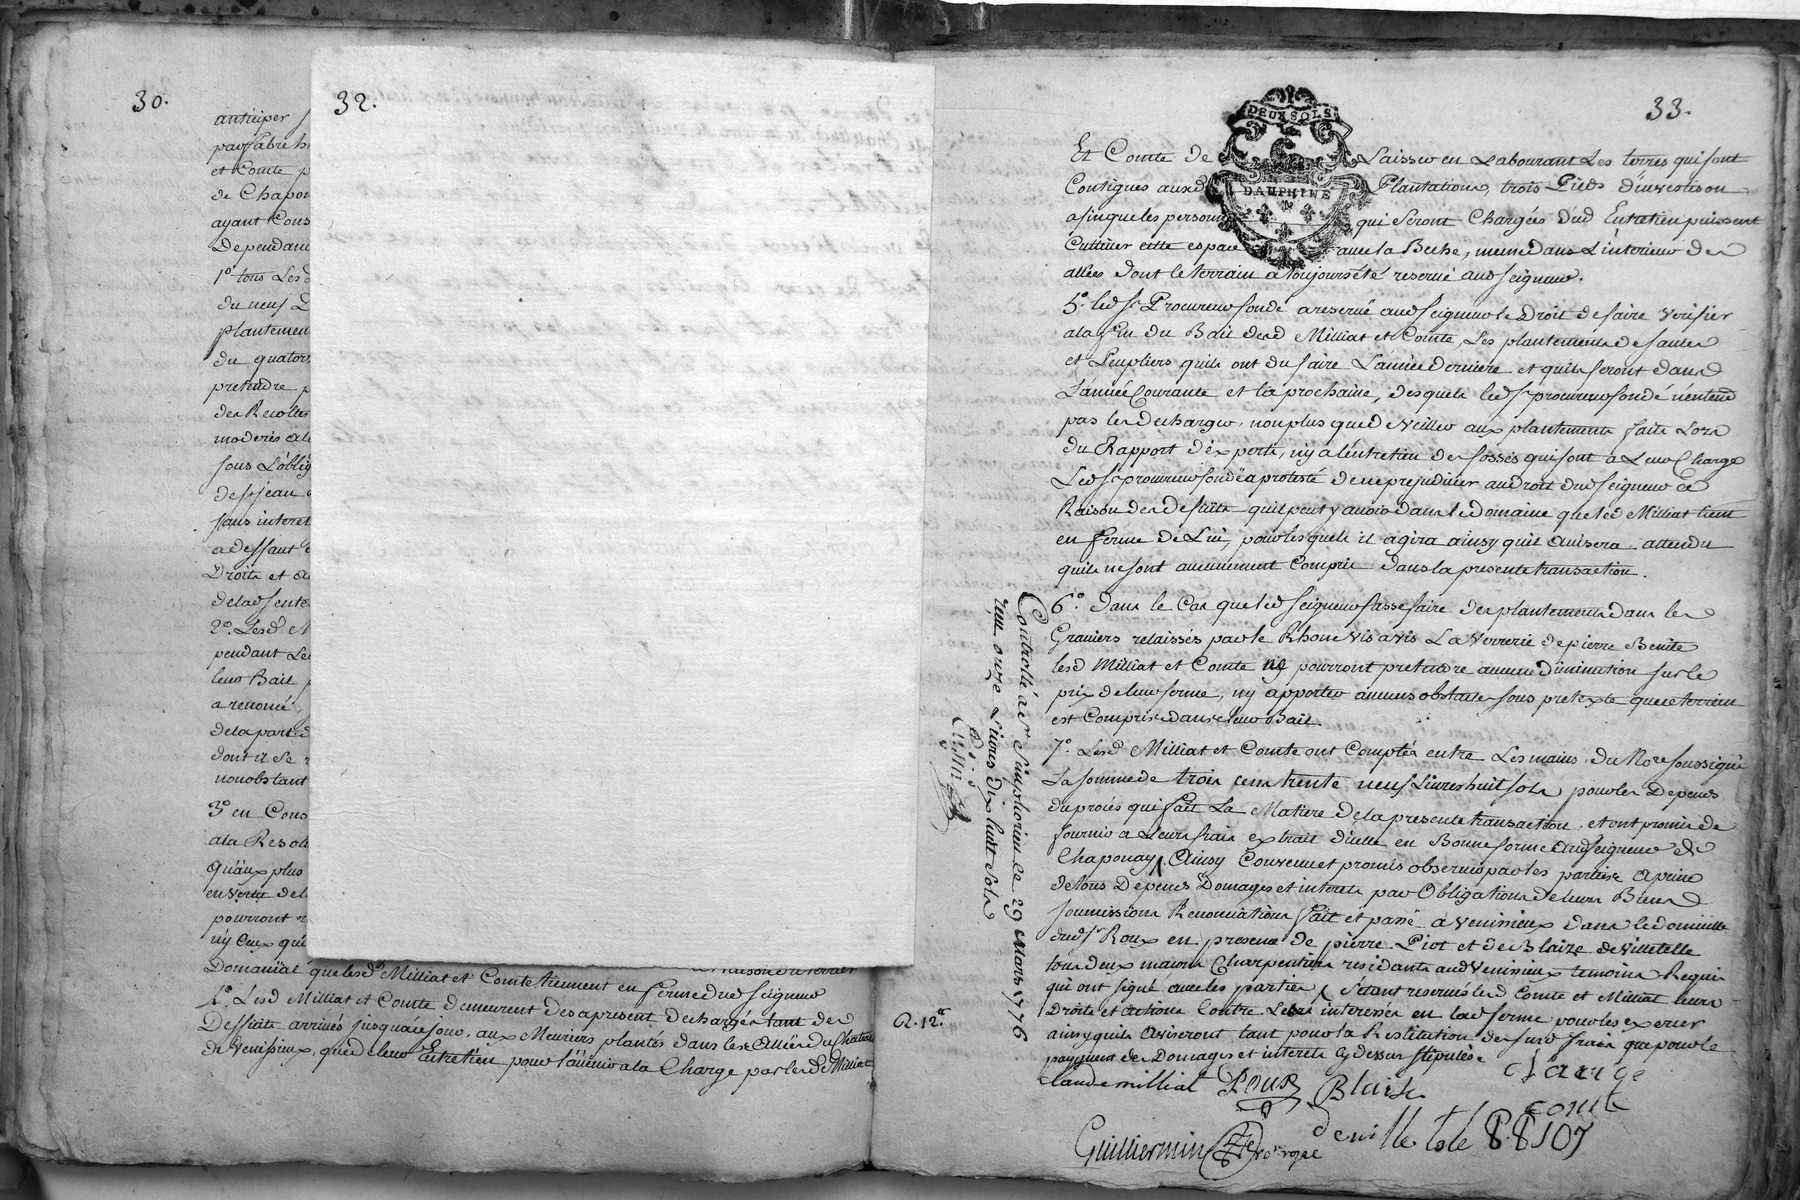 30.
anticiper
par sabre h
et Comte p
de Chapon
ayant Cons
Dependanc
1° tous Les d
du neuf D
plantemen
du quator
pretendre p
des Recoltes
moderés a l
sous L'oblig
de sr jean
sans interet
a deffaut
Droits et a
de lad. sente
2°. Lesd. M
pendant Le
leur Bail
a renoncé
de la part d
dont il se
nonobstant
3° en Cons
a la Resol
Qu'aux plus
en vertu de l
pourront
n'y Ceux qu'
a Raison du terrier
Domanial que lesd. Milliat et Comte tiennent en ferme dud Seigneur
4°. Lesd Milliat et Comte demeurent des apresent dechargés tant des
Deffuite arrivés jusqu'a ce jour, aux Meuriers plantés dans les Allées du Chateau
de Venissieux, que de leur Entretien pour l'avenir a la Charge par lesd. Milliat
32.
33.
DEUX SOLS
DAUPHINE
Et Comte de Laisser en Labourant Les terres qui sont
Contigues auxd Plantations, trois Pieds d'investison
afin que les personn qui seront Chargées dud Entretien puissent
Cultiver cette espace avec la Beche, meme dans L'interieur des
allées dont le terrain a toujours été reservé aud seigneur.
5°. led. sr. Procureur fondé a reservé aud seigneur le Droit de faire verifier
a la fin du Bail desd Milliat et Comte, Les plantements de saules
et Peupliers quils ont du faire L'année derniere et quils feront dans
L'année Courante et la prochaine, desquels led. sr. procureur fondé n'entend
pas les decharger, non plus que de veiller aux plantements faits Lors
du Rapport d'experts, n'y a l'entretien des fossés qui sont a Leur Charge
Led sr. procureur fondé a protesté de ne prejudicier au droit dud seigneur a
Raison des defuits quil peut y avoir dans le domaine que led Milliat tient
en ferme de Lui, pour lesquels il agira ainsy quil avisera attendu
quils ne sont aucunement Compris dans la presente transaction.
6°. dans le Cas que led. seigneur fasse faire des plantements dans les
Graviers relaissés par le Rhone vis a vis La Verrerie de pierre Benite
lesd Milliat et Comte ne pourront pretendre aucune diminution sur le
prix de leur ferme, n'y apporter aucuns obstacles sous pretexte que ce terrein
est Compris dans leur Bail.
7°. Lesd Milliat et Comte ont Comptés entre Les mains du Nore soussigné
La somme de trois cens trente neuf Livres huit sols pour les Depens
du procés qui fait La Matiere de la presente transaction, et ont promis de
fournir a Leurs frais extrait d'icelle en Bonne forme aud seigneur de
Chaponay, Ainsy Convenu et promis observer par les parties a peine
de tous Depens Domages et interets par Obligations de leurs Biens
soumissions Renonciations fait et passé a Venissieux dans le domicille
dud sr. Roux en presence de pierre Piot et de Blaize de Villetelle
tous deux maitres Charpentiers residants aud Venissieux temoins Requis
qui ont signé avec les parties, s'étant reservés led Comte et Milliat leurs
Droits et actions Contre Les interessés en lad ferme pour les exercer
ainsy quils aviseront tant pour la Restitution desurd frais que pour le
payement des Domages et interets cy dessus stipulés.
claude milliat Roux Blaise clauge
comte
de ville tele P. PIOT
Guilliermin
R. 12s
Controllé a St Simphorien ce 29 Mars 1776
reçu onze Livres dix huit sols